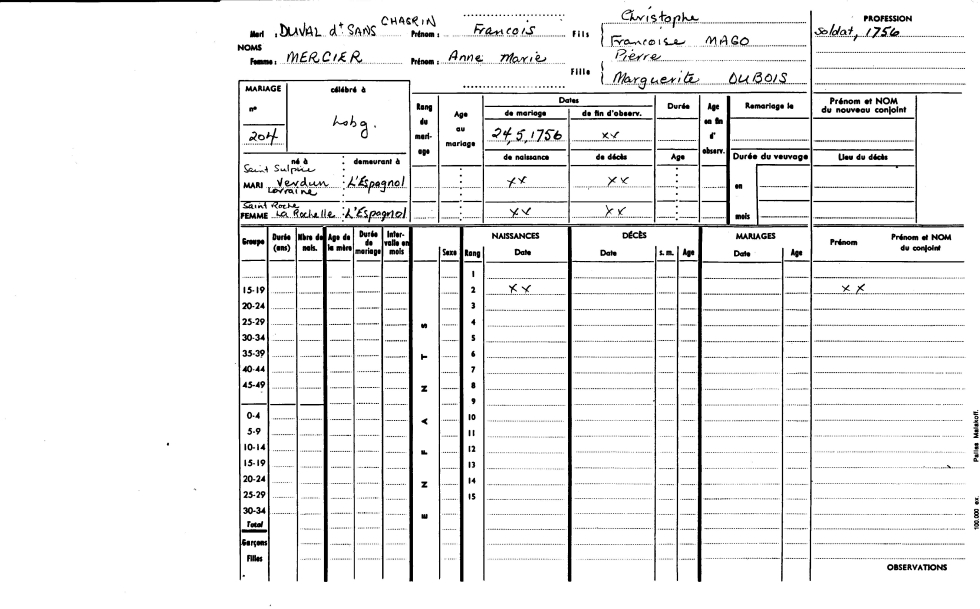 Mari : DUVAL dt SANS CHAGRIN Prénom : Francois Fils Christophe
Francoise MAGO
PROFESSION
Soldat, 1756
NOMS
Femme : MERCIER Prénom : Anne Marie Fille Pierre
Marguerite DUBOIS
MARIAGE célébré à
n°
204 Lobg.
Rang du mari-age
Age au mariage
Dates
de mariage de fin d'observ.
24,5,1756 xx
de naissance de décès
xx xx
xx xx
Durée
Age
Age en fin d' observ.
Remariage le
Durée du veuvage
en
mois
Prénom et NOM
du nouveau conjoint
Lieu du décès
né à demeurant à
Saint Sulpice
MARI Verdun L'Espagnol
Lorraine
Saint Roche
FEMME La Rochelle L'Espagnol
Groupe Durée (ans) Nbre de nais. Age de la mère Durée de mariage Inter-valle en mois
Sexe Rang NAISSANCES Date DÉCÈS Date s. m. Age MARIAGES Date Age Prénom Prénom et NOM du conjoint
1
15-19 2 xx xx
20-24 3
25-29 4
30-34 5
35-39 6
40-44 7
45-49 8
9
0-4 10
5-9 11
10-14 12
15-19 13
20-24 14
25-29 15
30-34
Total
Garçons
Filles
ENFANTS
OBSERVATIONS
100.000 ex. Parlies Malakoff.